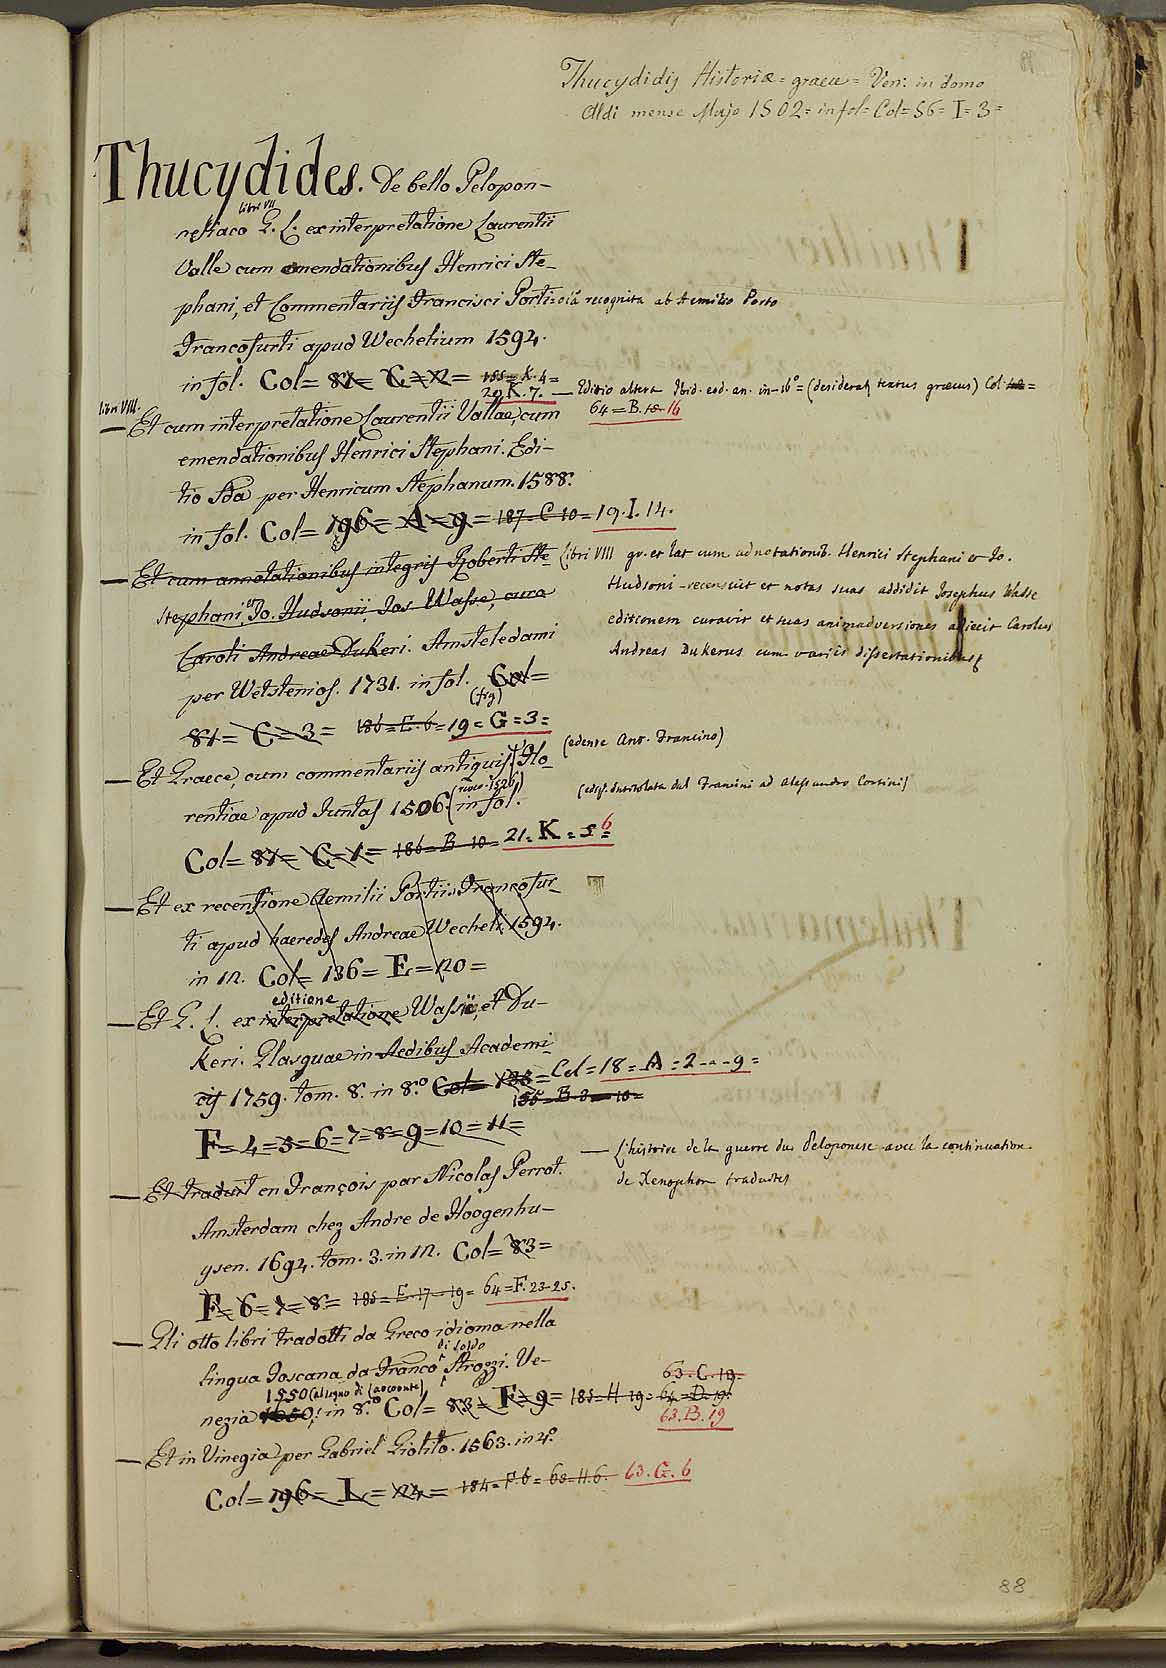 Thucydidis Historiæ = graece = Ven: in domo
Aldi mense Majo 1502 = in fol = Col = 56 = I = 3 =
Thucydides. De bello Pelopon-
libri VII
nesiaco G. L. ex interpretatione Laurentii
Valle cum emendationibus Henrici Ste-
phani, et Commentariis Francisci Porti = ciâ recognita ab Aemilio Porto
Francofurti apud Wechelium 1594.
in fol. Col = 81 = C = 12 = 155 = K. 4 =
20. K. 7. — Editio altera Ibid. eod. an. in-16° = (desideras textus græcus) Col. =
64 = B. 18 16
libri VIII.
— Et cum interpretatione Laurentii Vallae, cum
emendationibus Henrici Stephani. Edi-
tio 2da per Henricum Stephanum. 1588.
in fol. Col = 196 = A = 9 = 187 = C 10 = 19. I. 14.
— Et cum annotationibus integris Roberti Ste- libri VIII gr. et lat cum adnotationib. Henrici Stephani & Jo.
Stephani, et Jo. Hudsonii, Jos Wasse, cura Hudsoni recensuit et notas suas addidit Josephus Wasse
editionem curavit et suas animadversiones adiecit Carolus
Caroli Andreae Dukeri. Amsteledami Andreas Dukerus cum variis dissertationibus
per Wetstenios. 1731. in fol. Col =
(frg)
81 = C = 3 = 186 = E. 6 = 19 = G = 3 =
— Et Graece, cum commentariis antiquis Flo- (edente Ant. Francino)
rentiae apud Juntas 1506. (nove. 1526) in fol. (edif. Intitolata dal Francini ad Alessandro Corsini)
Col = 87 = C = 1 = 186 = B 10 = 21 = K = 5 = 6
— Et ex recensione Aemilii Portii. Francofur-
ti apud haeredes Andreae Wecheli 1594.
in 12. Col = 136 = E = 20 =
editione
— Et G. L. ex interpretatione Wassii, et Du-
keri. Glasguae in Aedibus Academi-
cis 1759. tom. 8. in 8.° Col = = Col = 18 = A = 2 - - 9 =
155 = B = 3 = 10 =
F = 4 = 5 = 6 = 7 = 8 = 9 = 10 = 11 =
— L'histoire de la guerre du Peloponese avec la continuation
de Xenophon traduites
— Et traduit en François par Nicolas Perrot.
Amsterdam chez Andre de Hoogenhu-
ysen. 1694. tom. 3. in 12. Col = 83 =
F = 6 = 7 = 8 = 185 = E. 17 - 19 = 64 = F. 23-25.
— Gli otto libri tradotti da Greco idioma nella
di soldo
lingua Toscana da Franco Strozzi. Ve-
1550 (al segno di Laocoonte) 63. C. 19.
nezia 1650. in 8.° Col = 83 = F = 9 = 185 = H 19 = 64 = D. 19.
63. B. 19
— Et in Vinegia per Gabriel Giolito. 1563. in 4.°
Col = 196 = L = 24 = 184 = F. 6 = 68 = H. 6. 63. G. 6
88